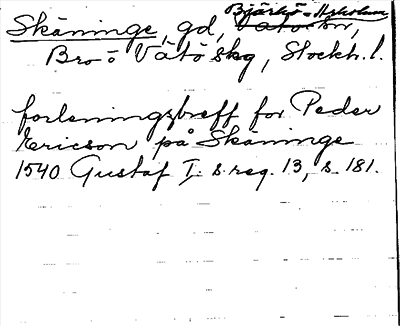 Björkö-Arholma
Skäninge, gd, Vätö sn,
Bro o Vätö skg, Stockh. l.
forleningsbreff for Peder
Ericson på Skäninge
1540 Gustaf I. s reg. 13, s. 181.